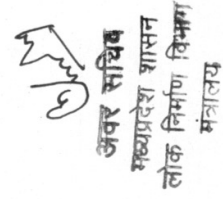 अवर सचिव
मध्यप्रदेश शासन
लोक निर्माण विभाग
मंत्रालय